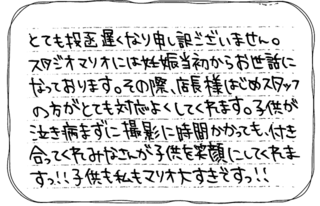 とても投函遅くなり申し訳ございません。
スタジオマリオには妊娠当初からお世話に
なっております。その際、店長様はじめスタッフ
の方がとても対応よくしてくれます。子供が
泣き病まずに撮影に時間かかっても、付き
合ってくれみなさんが子供を笑顔にしてくれま
すっ!!子供も私もマリオ大すきですっ!!